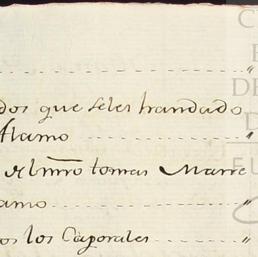 dos que seles han dado
flamo
Alm̃ro tomas Marre
amo
os los Caporales